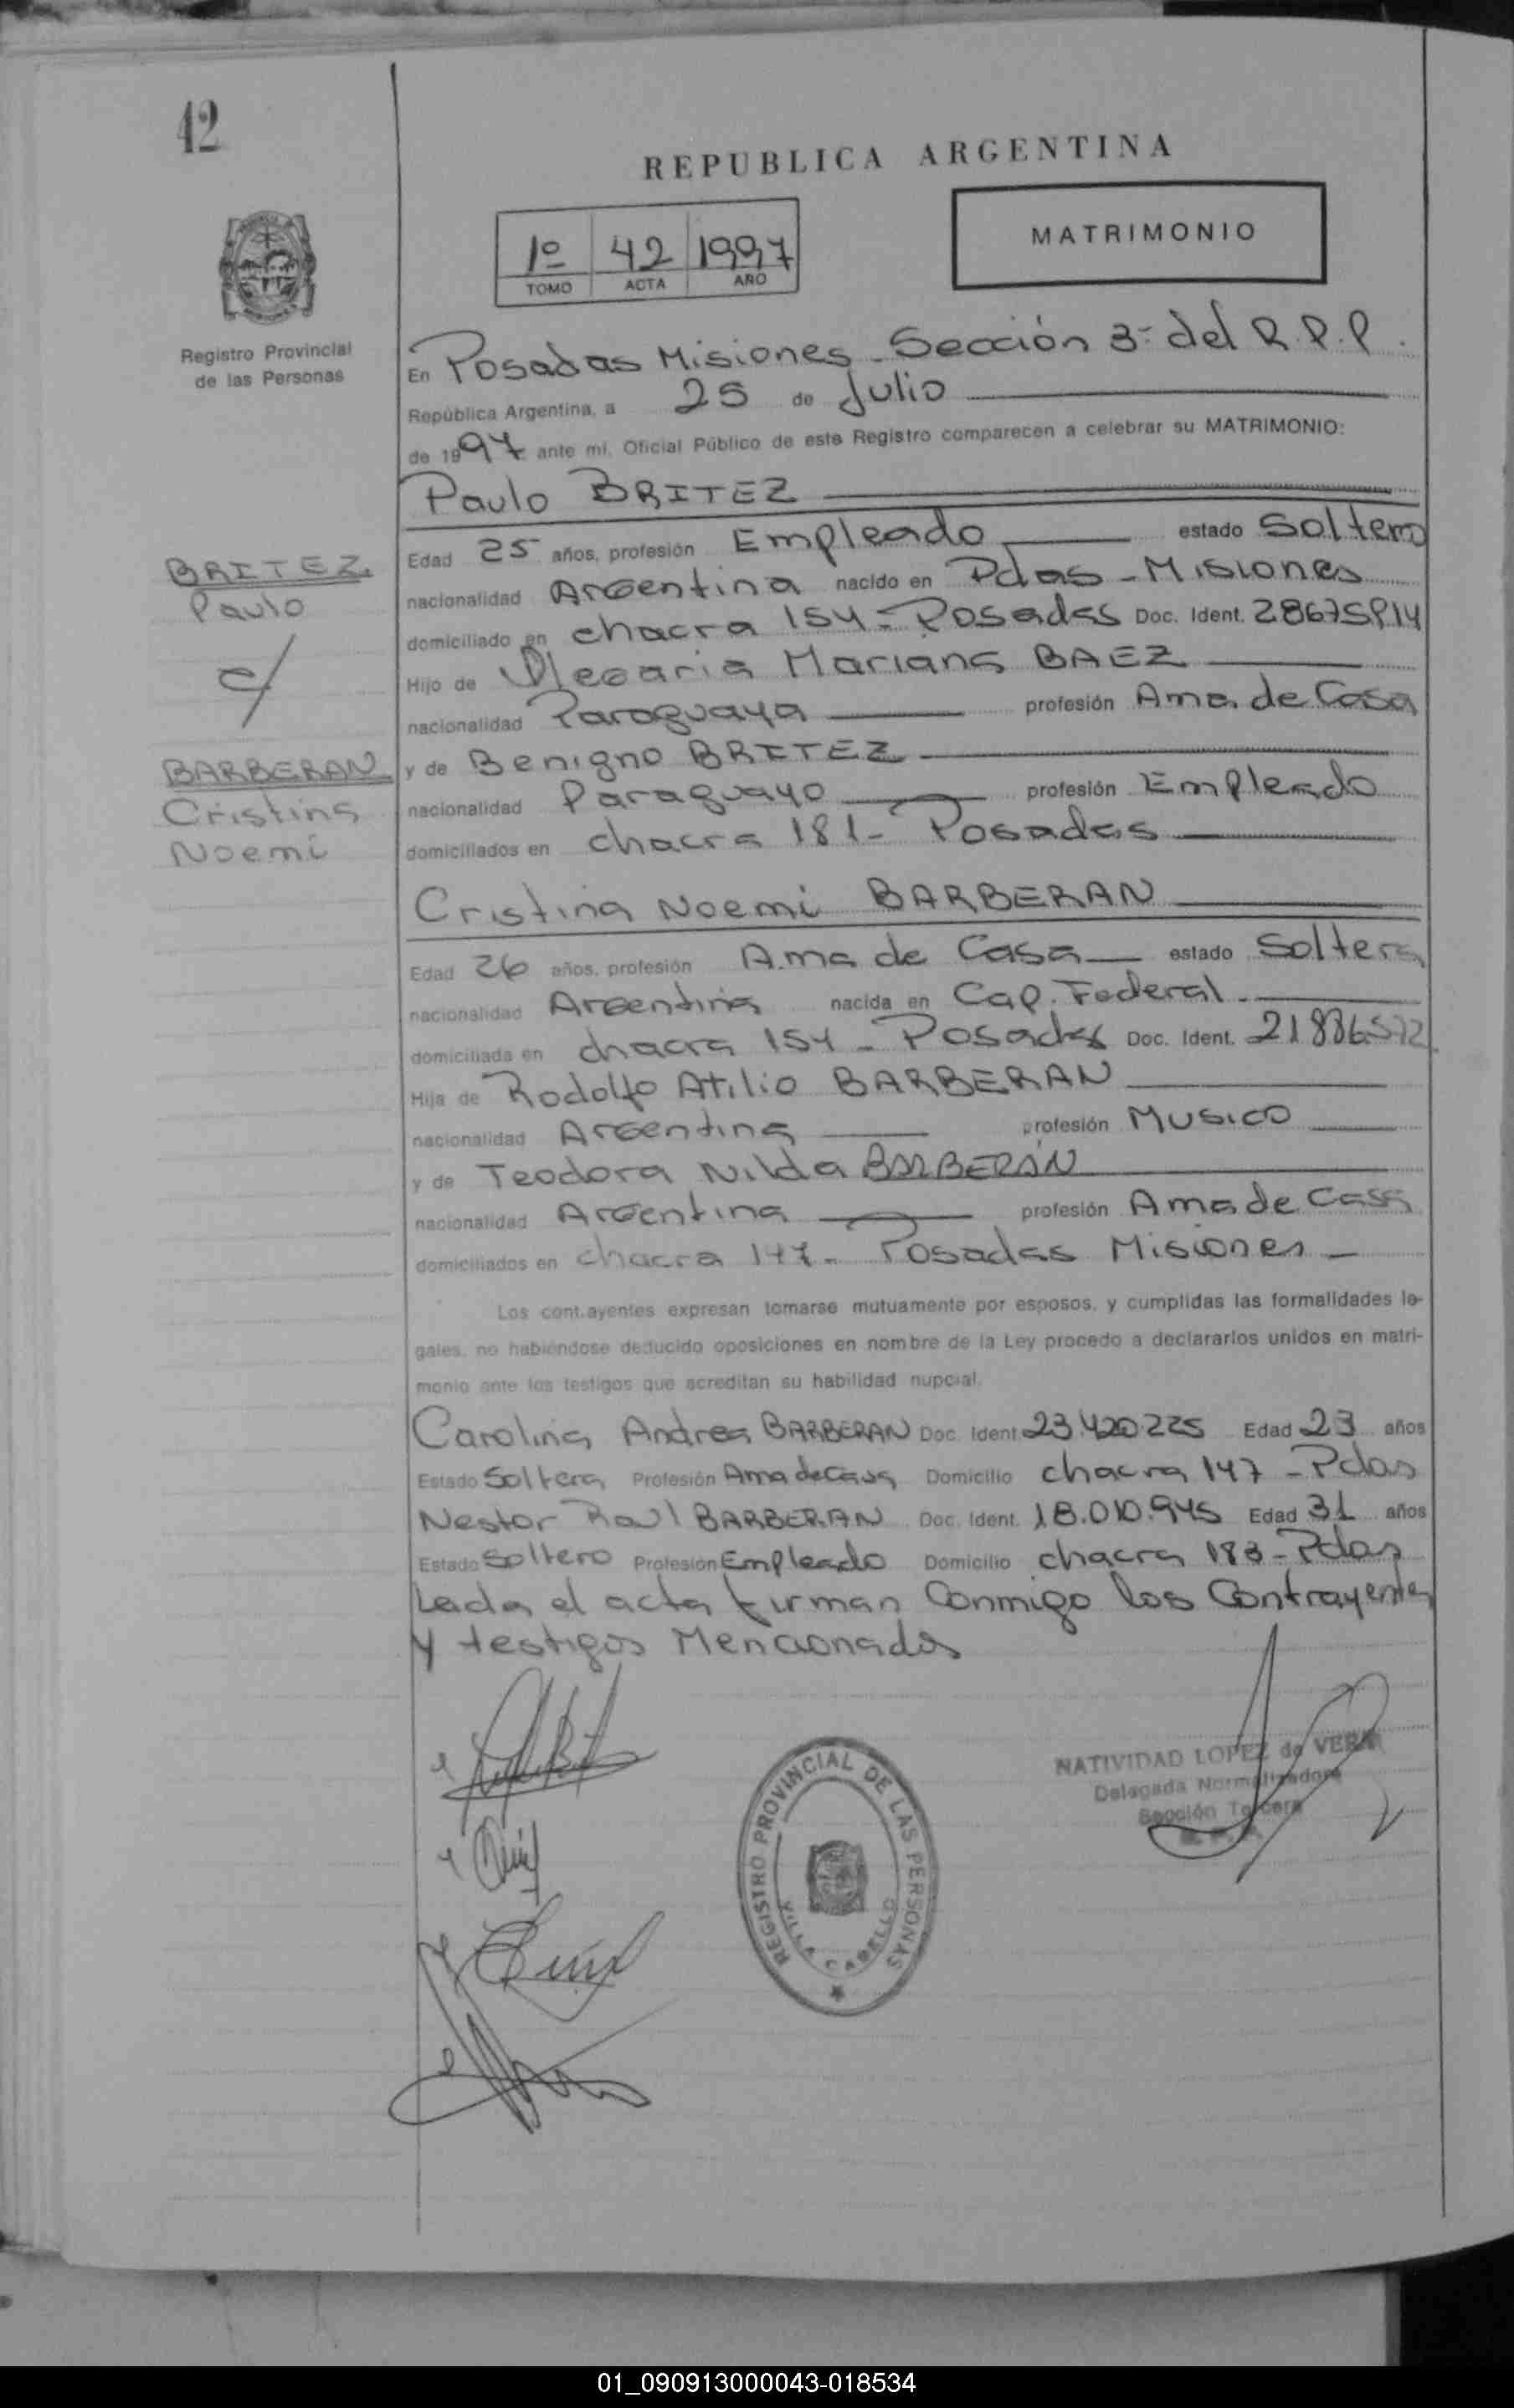 42
REPUBLICA ARGENTINA
1º 42 1997
TOMO ACTA AÑO
MATRIMONIO
Registro Provincial
de las Personas
En Posadas Misiones - Sección 3ª del R.P.P.
República Argentina, a 25 de Julio
de 1997 ante mi, Oficial Público de este Registro comparecen a celebrar su MATRIMONIO:
Paulo BRITEZ
Edad 25 años, profesión Empleado estado Soltero
nacionalidad Argentina nacido en Pdas - Misiones
domiciliado en chacra 154 - Posadas Doc. Ident.
Hijo de Mariana BAEZ
nacionalidad Paraguaya profesión Ama de Casa
y de Benigno BRITEZ
nacionalidad Paraguayo profesión Empleado
domiciliados en chacra 181 - Posadas
BRITEZ
Paulo
c/
BARBERAN
Cristina
Noemi
Cristina Noemi BARBERAN
Edad 26 años, profesión Ama de Casa estado Soltera
nacionalidad Argentina nacida en Cap. Federal.
domiciliada en chacra 154 - Posadas Doc. Ident.
Hija de Rodolfo Atilio BARBERAN
nacionalidad Argentina profesión Musico
y de Teodora Nilda BARBERÁN
nacionalidad Argentina profesión Ama de Casa
domiciliados en chacra 147 - Posadas Misiones -
Los cont.ayentes expresan tomarse mutuamente por esposos, y cumplidas las formalidades le-
gales, no habiéndose deducido oposiciones en nombre de la Ley procedo a declararlos unidos en matri-
monio ante los testigos que acreditan su habilidad nupcial.
Carolina Andrea BARBERAN Doc. Ident. 23.420.225 Edad 23 años
Estado Soltera Profesión Ama de Casa Domicilio chacra 147 - Pdas
Nestor Raul BARBERAN Doc. Ident. 18.010.945 Edad 31 años
Estado Soltero Profesión Empleado Domicilio chacra 183 - Pdas
Leida el acta firman Conmigo los Contrayentes
y testigos Mencionados
NATIVIDAD LOPEZ de VERA
Delegada Normalizadora
Sección Tercera
REGISTRO PROVINCIAL DE LAS PERSONAS
VILLA CABELLO
01_090913000043-018534